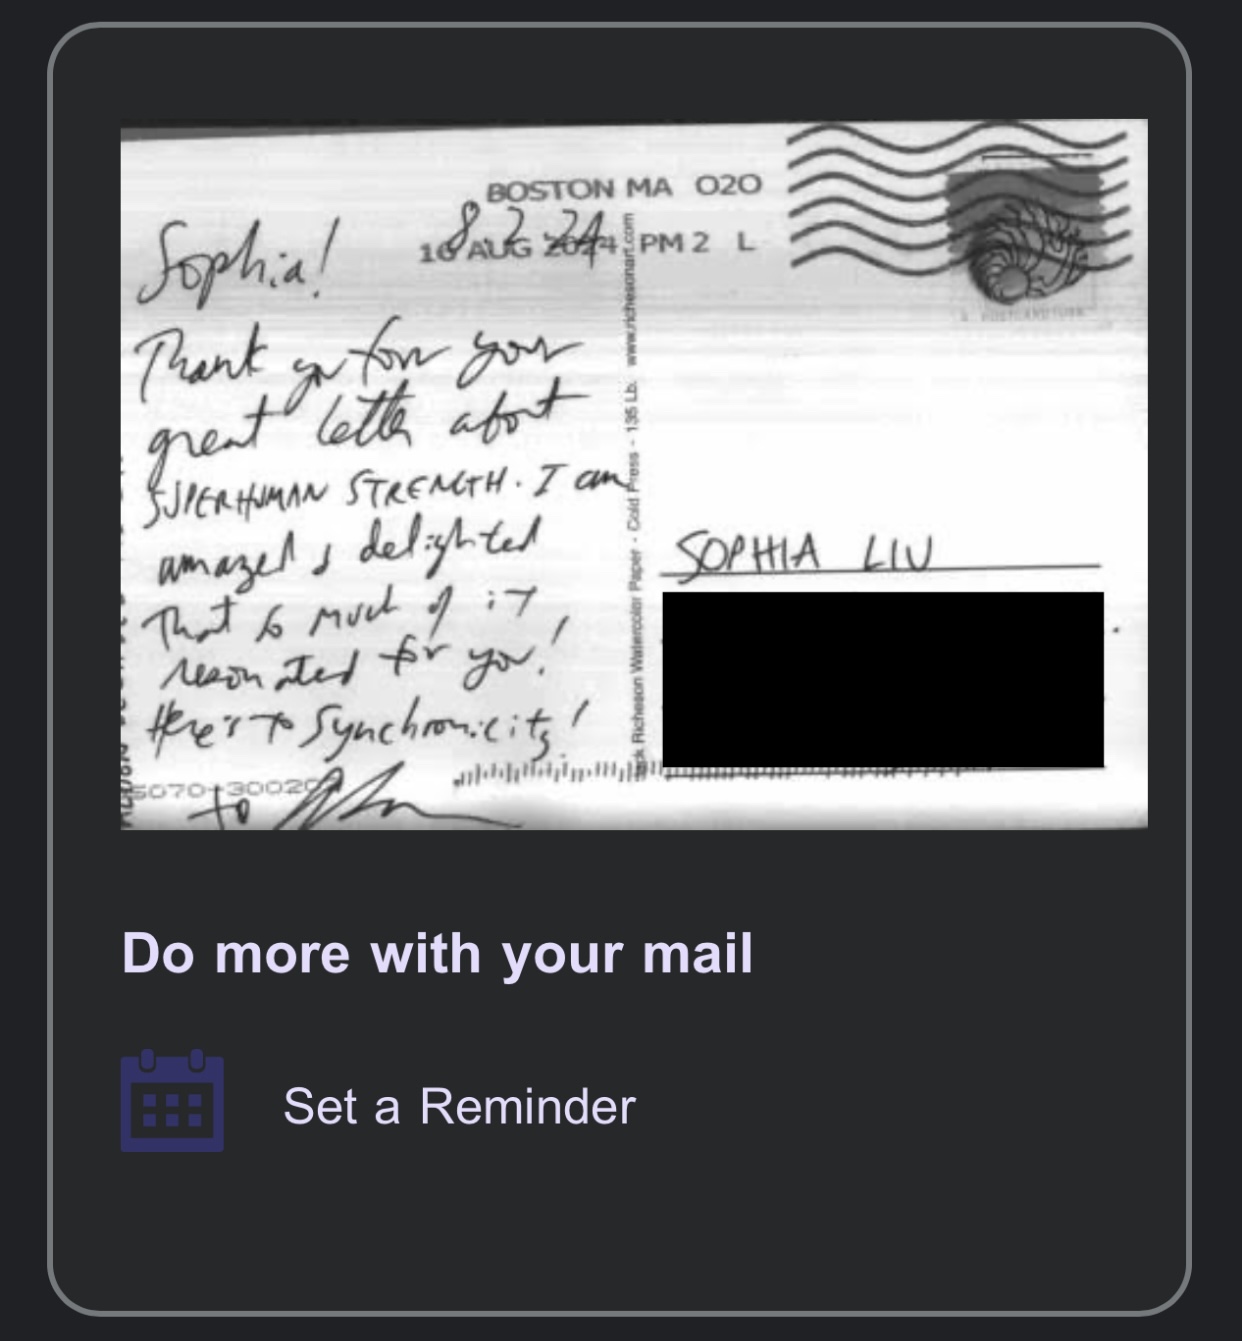 BOSTON MA 020
8.2.24
16 AUG 2024 PM 2 L
Sophia!
Thank you for your
great letter about
SUPERHUMAN STRENGTH. I am
amazed & delighted
That so much of it
resonated for you!
Here's to Synchronicity!
to
SOPHIA LIU
ck Richeson Watercolor Paper - Cold Press - 135 Lb. www.richesonart.com
5070-30020
Do more with your mail
Set a Reminder